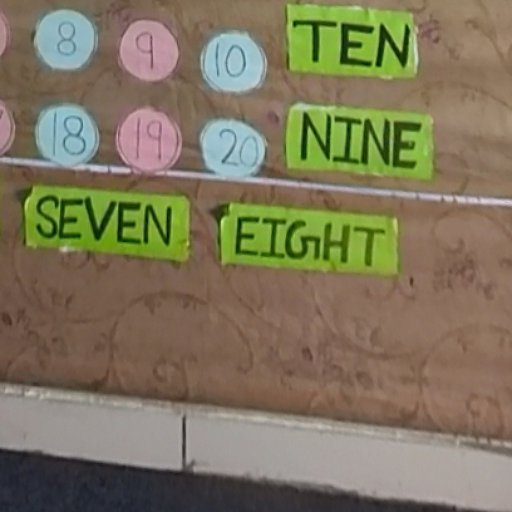 8 9 10 TEN
18 19 20 NINE
SEVEN EIGHT